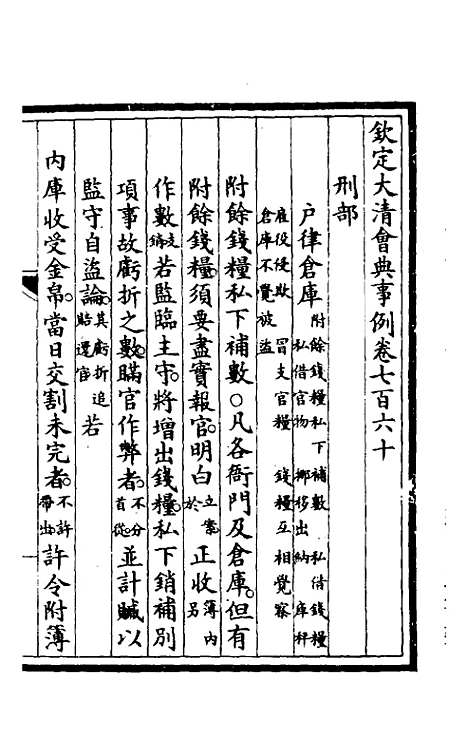 欽定大清會典事例卷七百六十
刑部
戶律倉庫附餘錢糧私下補數 私借錢糧
私借官物 挪移出納 庫秤
雇役侵欺 冒支官糧 錢糧互相覺察
倉庫不覺被盜
附餘錢糧私下補數○凡各衙門及倉庫但有
附餘錢糧須要盡實報官明白立案正收簿內
於 另
作數支銷若監臨主守將增出錢糧私下銷補別
項事故虧折之數瞞官作弊者不分首從並計贓以
監守自盜論其虧折追賠還官若
內庫收受金帛當日交割未完者不許帶出許令附簿